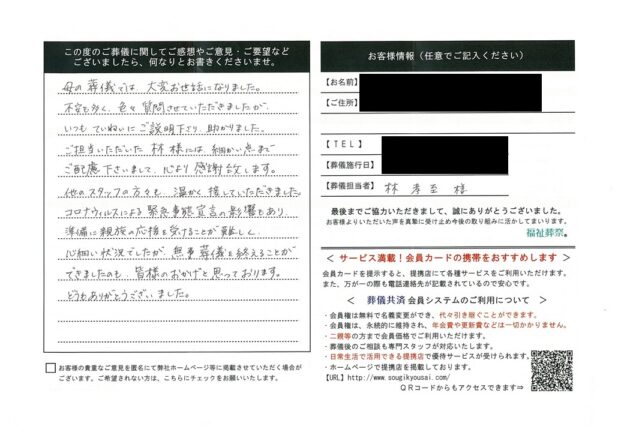 この度のご葬儀に関してご感想やご意見・ご要望など
ございましたら、何なりとお書きくださいませ。
母の葬儀では、大変お世話になりました。
不安も多く、色々質問させていただきましたが、
いつもていねいにご説明下さり、助かりました。
ご担当いただいた林様には、細かい点まで
ご配慮下さいまして、心より感謝致します。
他のスタッフの方々も、温かく接していただきました。
コロナウィルスによる緊急事態宣言の影響もあり、
準備に親族の応援を受けることが難しく、
心細い状況でしたが、無事葬儀を終えることが
できましたのも、皆様のおかげと思っております。
どうもありがとうございました。
お客様の貴重なご意見を匿名にて弊社ホームページ等に掲載させていただく場合が
ございます。ご希望されない方は、こちらにチェックをお願いいたします。
お客様情報(任意でご記入ください)
【お名前】
【ご住所】
【TEL】
【葬儀施行日】
【葬儀担当者】 林 様
最後までご協力いただきまして、誠にありがとうございました。
お客様よりいただいた声を真摯に受け止め今後の取り組みに活かしてまいります。
福祉葬祭
< サービス満載!会員カードの携帯をおすすめします >
会員カードを提示すると、提携店にて各種サービスをご利用いただけます。
また、万が一の際も電話連絡先が記載されているので安心です。
< 葬儀共済 会員システムのご利用について >
・会員権は無料で名義変更ができ、代々引き継ぐことができます。
・会員権は、永続的に維持され、年会費や更新費などは一切かかりません。
・二親等の方まで会員価格でご利用いただけます。
・葬儀後のご相談も専門スタッフが対応いたします。
・日常生活で活用できる提携店で優待サービスが受けられます。
・ホームページで提携店を掲載しております。
【URL】http://www.sougikyousai.com/
QRコードからもアクセスできます⇒